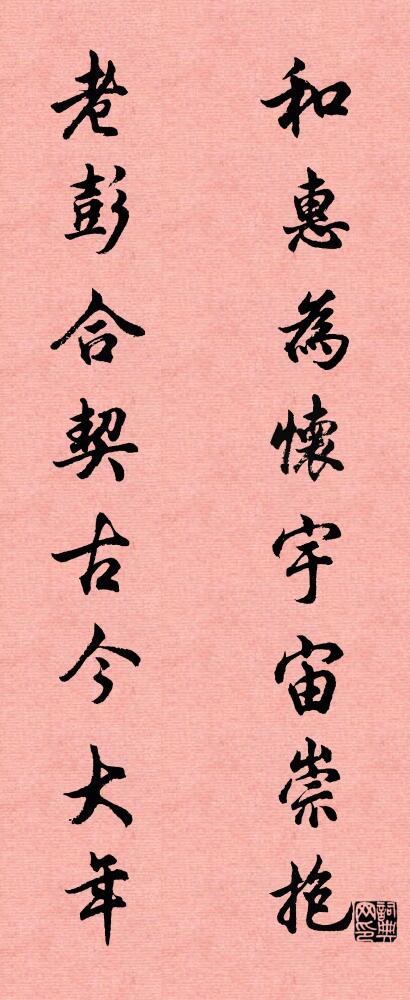 和惠為懷宇宙崇抱
老彭合契古今大年
詞典網印